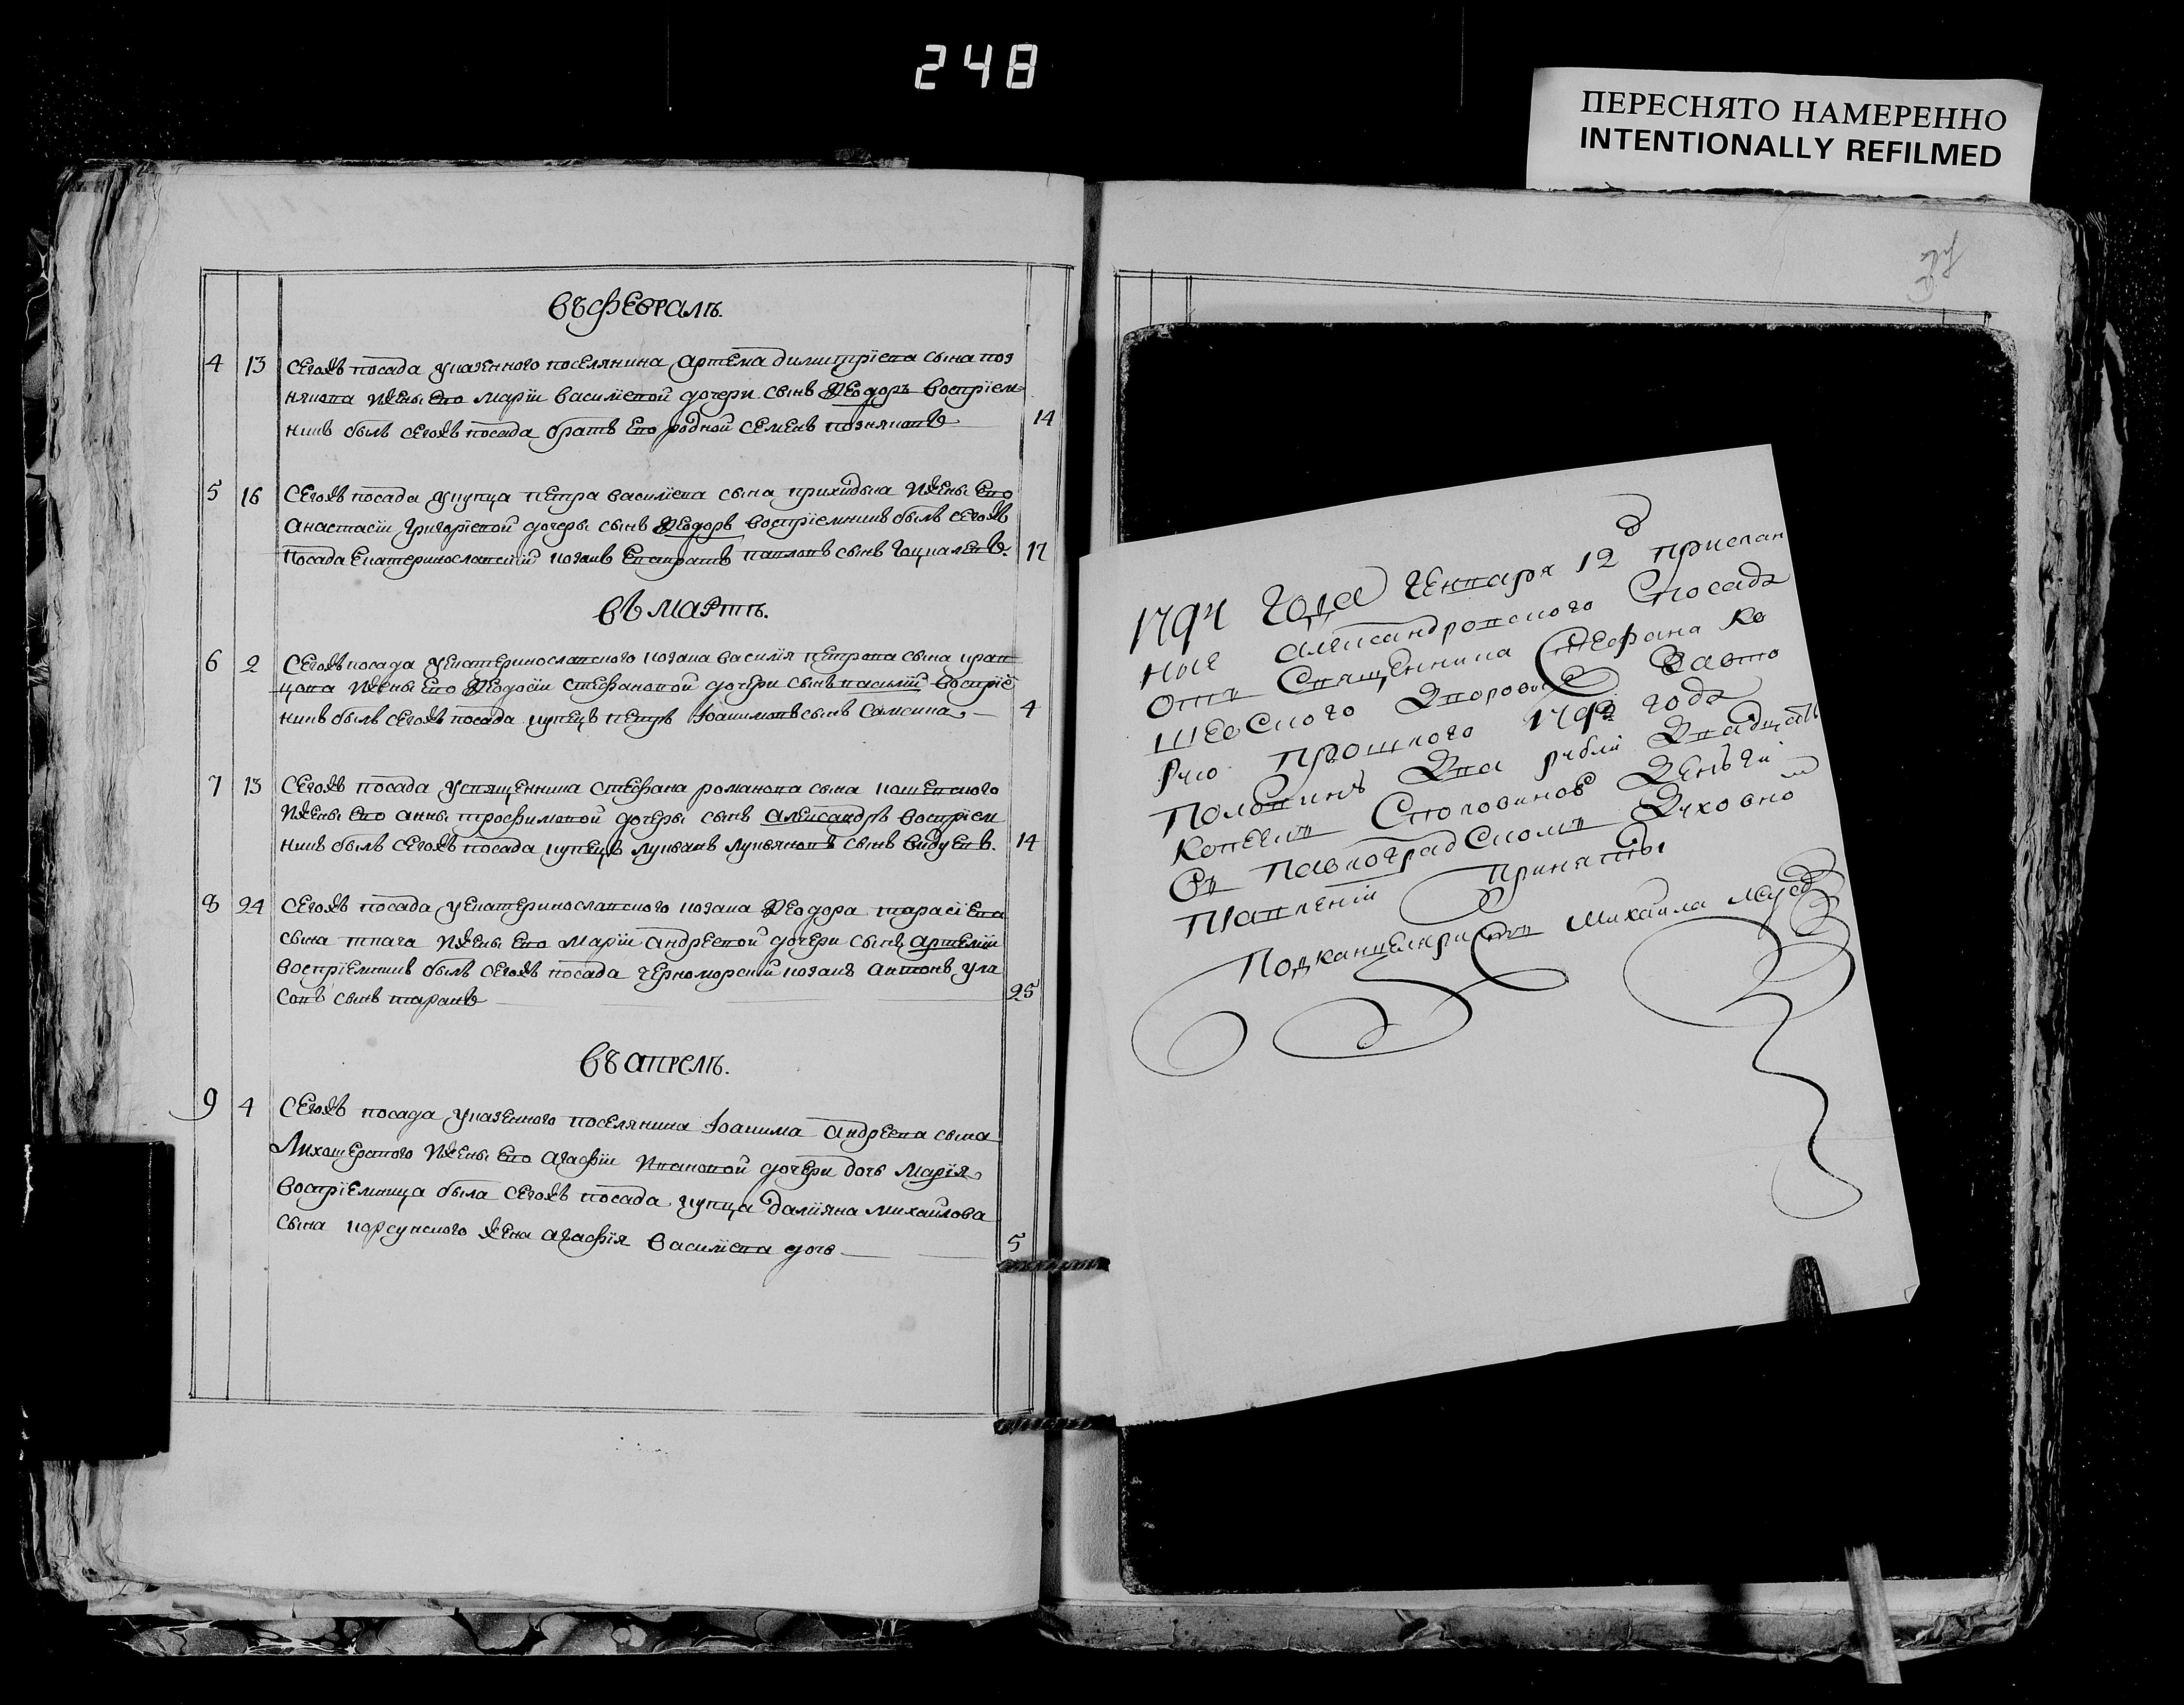 248
ПЕРЕСНЯТО НАМЕРЕННО
INTENTIONALLY REFILMED
Въ Февралѣ.
4 13 Сегожъ посада у казенного поселянина Артема Димитрїева сына Поз
някова жены его Марїи Василїевой дочери сынъ Ѳеодоръ восприем
никъ былъ сегожъ посада братъ его родной Семенъ Позняковъ 14
5 16 Сегожъ посада у купца Петра Василїева сына жены его
Анастасїи Григорїевой дочери сынъ Ѳеодоръ воспрїемникъ былъ сегожъ
посада Екатеринославскїй козакъ Евстратъ Павловъ сынъ 17
Въ Мартѣ.
6 2 Сегожъ посада у Екатеринославского козака Василїя Петрова сына Крав
цова жены его Ѳеодосїи Стефановой дочери сынъ Василїй воспрїем
никъ былъ сегожъ посада купецъ Петръ Іоакимовъ сынъ Самсика 4
7 13 Сегожъ посада у священника Стефана Романова сына Кошевского
жены его Анны Трофимовой дочери сынъ Александръ воспрїем
никъ былъ сегожъ посада купецъ Лукьянъ Лукьяновъ сынъ 14
8 24 Сегожъ посада у Екатеринославского козака Ѳеодора Тарасїева
сына Ткача жены его Марїи Андреевой дочери сынъ Артемїй
воспрїемникъ былъ сегожъ посада черноморскїй козакъ Антонъ Ула
совъ сынъ Таранъ 25
Въ Апрелѣ.
9 4 Сегожъ посада у казенного поселянина Іоакима Андреева сына
Лихошерстого жены его Агафїи Ивановой дочери дочь Марїя
воспрїемница была сегожъ посада купца Далїяна Михайлова
сына Корсунского жена Агафїя Василїева дочь 5
1794 Года Генваря 12 д прислан
ные Александровского Споседа
отъ Священника Стефана Ко
шевского
рую Прошлого 1793 года
Половинъ Два рубли Двадцать
Копеекъ Споловиною Деньги
Въ Павлоградскомъ Духовно
Правленїи Приняты
Подканцеляристъ Михайла